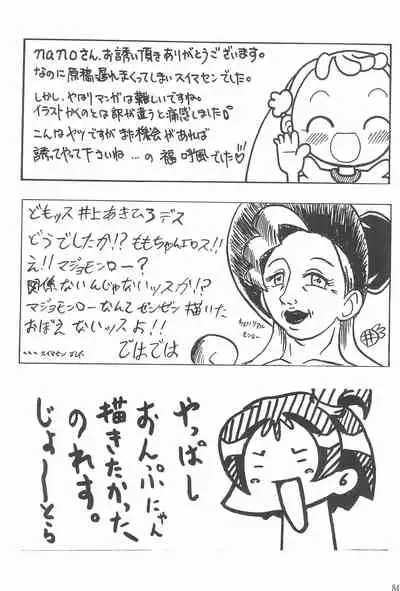 nanoさん、お誘い頂きありがとうございます。
なのに原稿遅れまくってしまいスイマセンでした。
しかし、やはりマンガは難しいですね。
イラストかくのとは訳が違うと痛感しました
こんなヤツですがまた機会があれば
誘ってやって下さいね…の 福 呼風でした♡
どもッス 井上あきひろデス
どうでしたか!? ももちゃんエロス!!
え!! マジョモンロー?
関係ないんじゃないッスか!?
マジョモンローなんてゼンゼン描いた
おぼえ ないッスよ!!
、、、スイマセン
ではでは
やっぱし
おんぷにゃん
描きたかった
のれす。
じょーとら
84